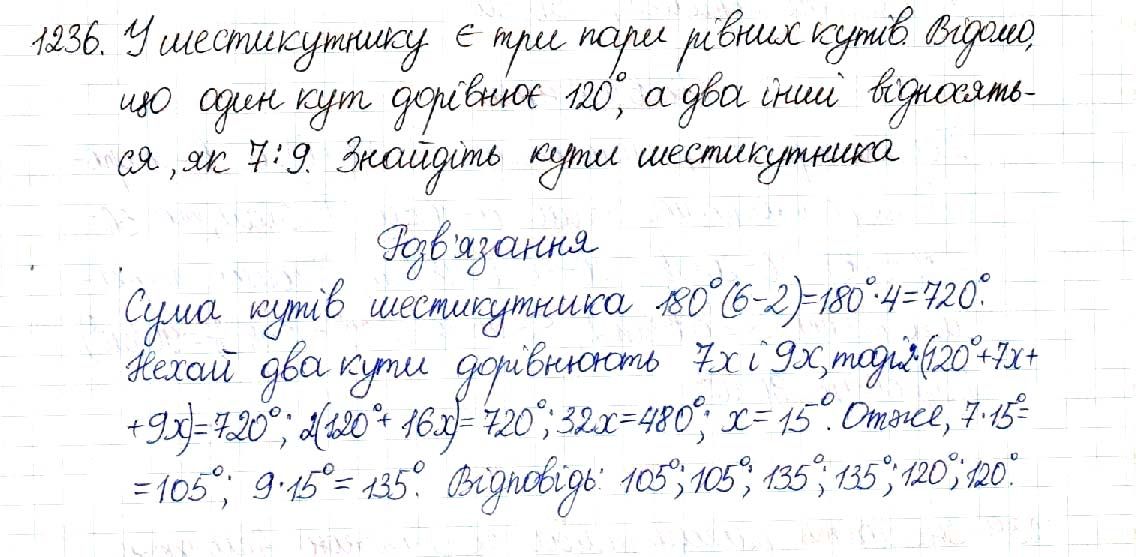 1236. У шестикутнику є три пари рівних кутів. Відомо,
що один кут дорівнює 120°, а два інші відносять-
ся, як 7:9. Знайдіть кути шестикутника
Розв'язання
Сума кутів шестикутника 180°(6-2)=180°·4=720°.
Нехай два кути дорівнюють 7х і 9х, тоді 2·(120°+7х+
+9х)=720°; 2(120°+16х)=720°; 32х=480°; х=15°. Отже, 7·15°=
=105°; 9·15°=135°. Відповідь: 105°; 105°; 135°; 135°; 120°; 120°.